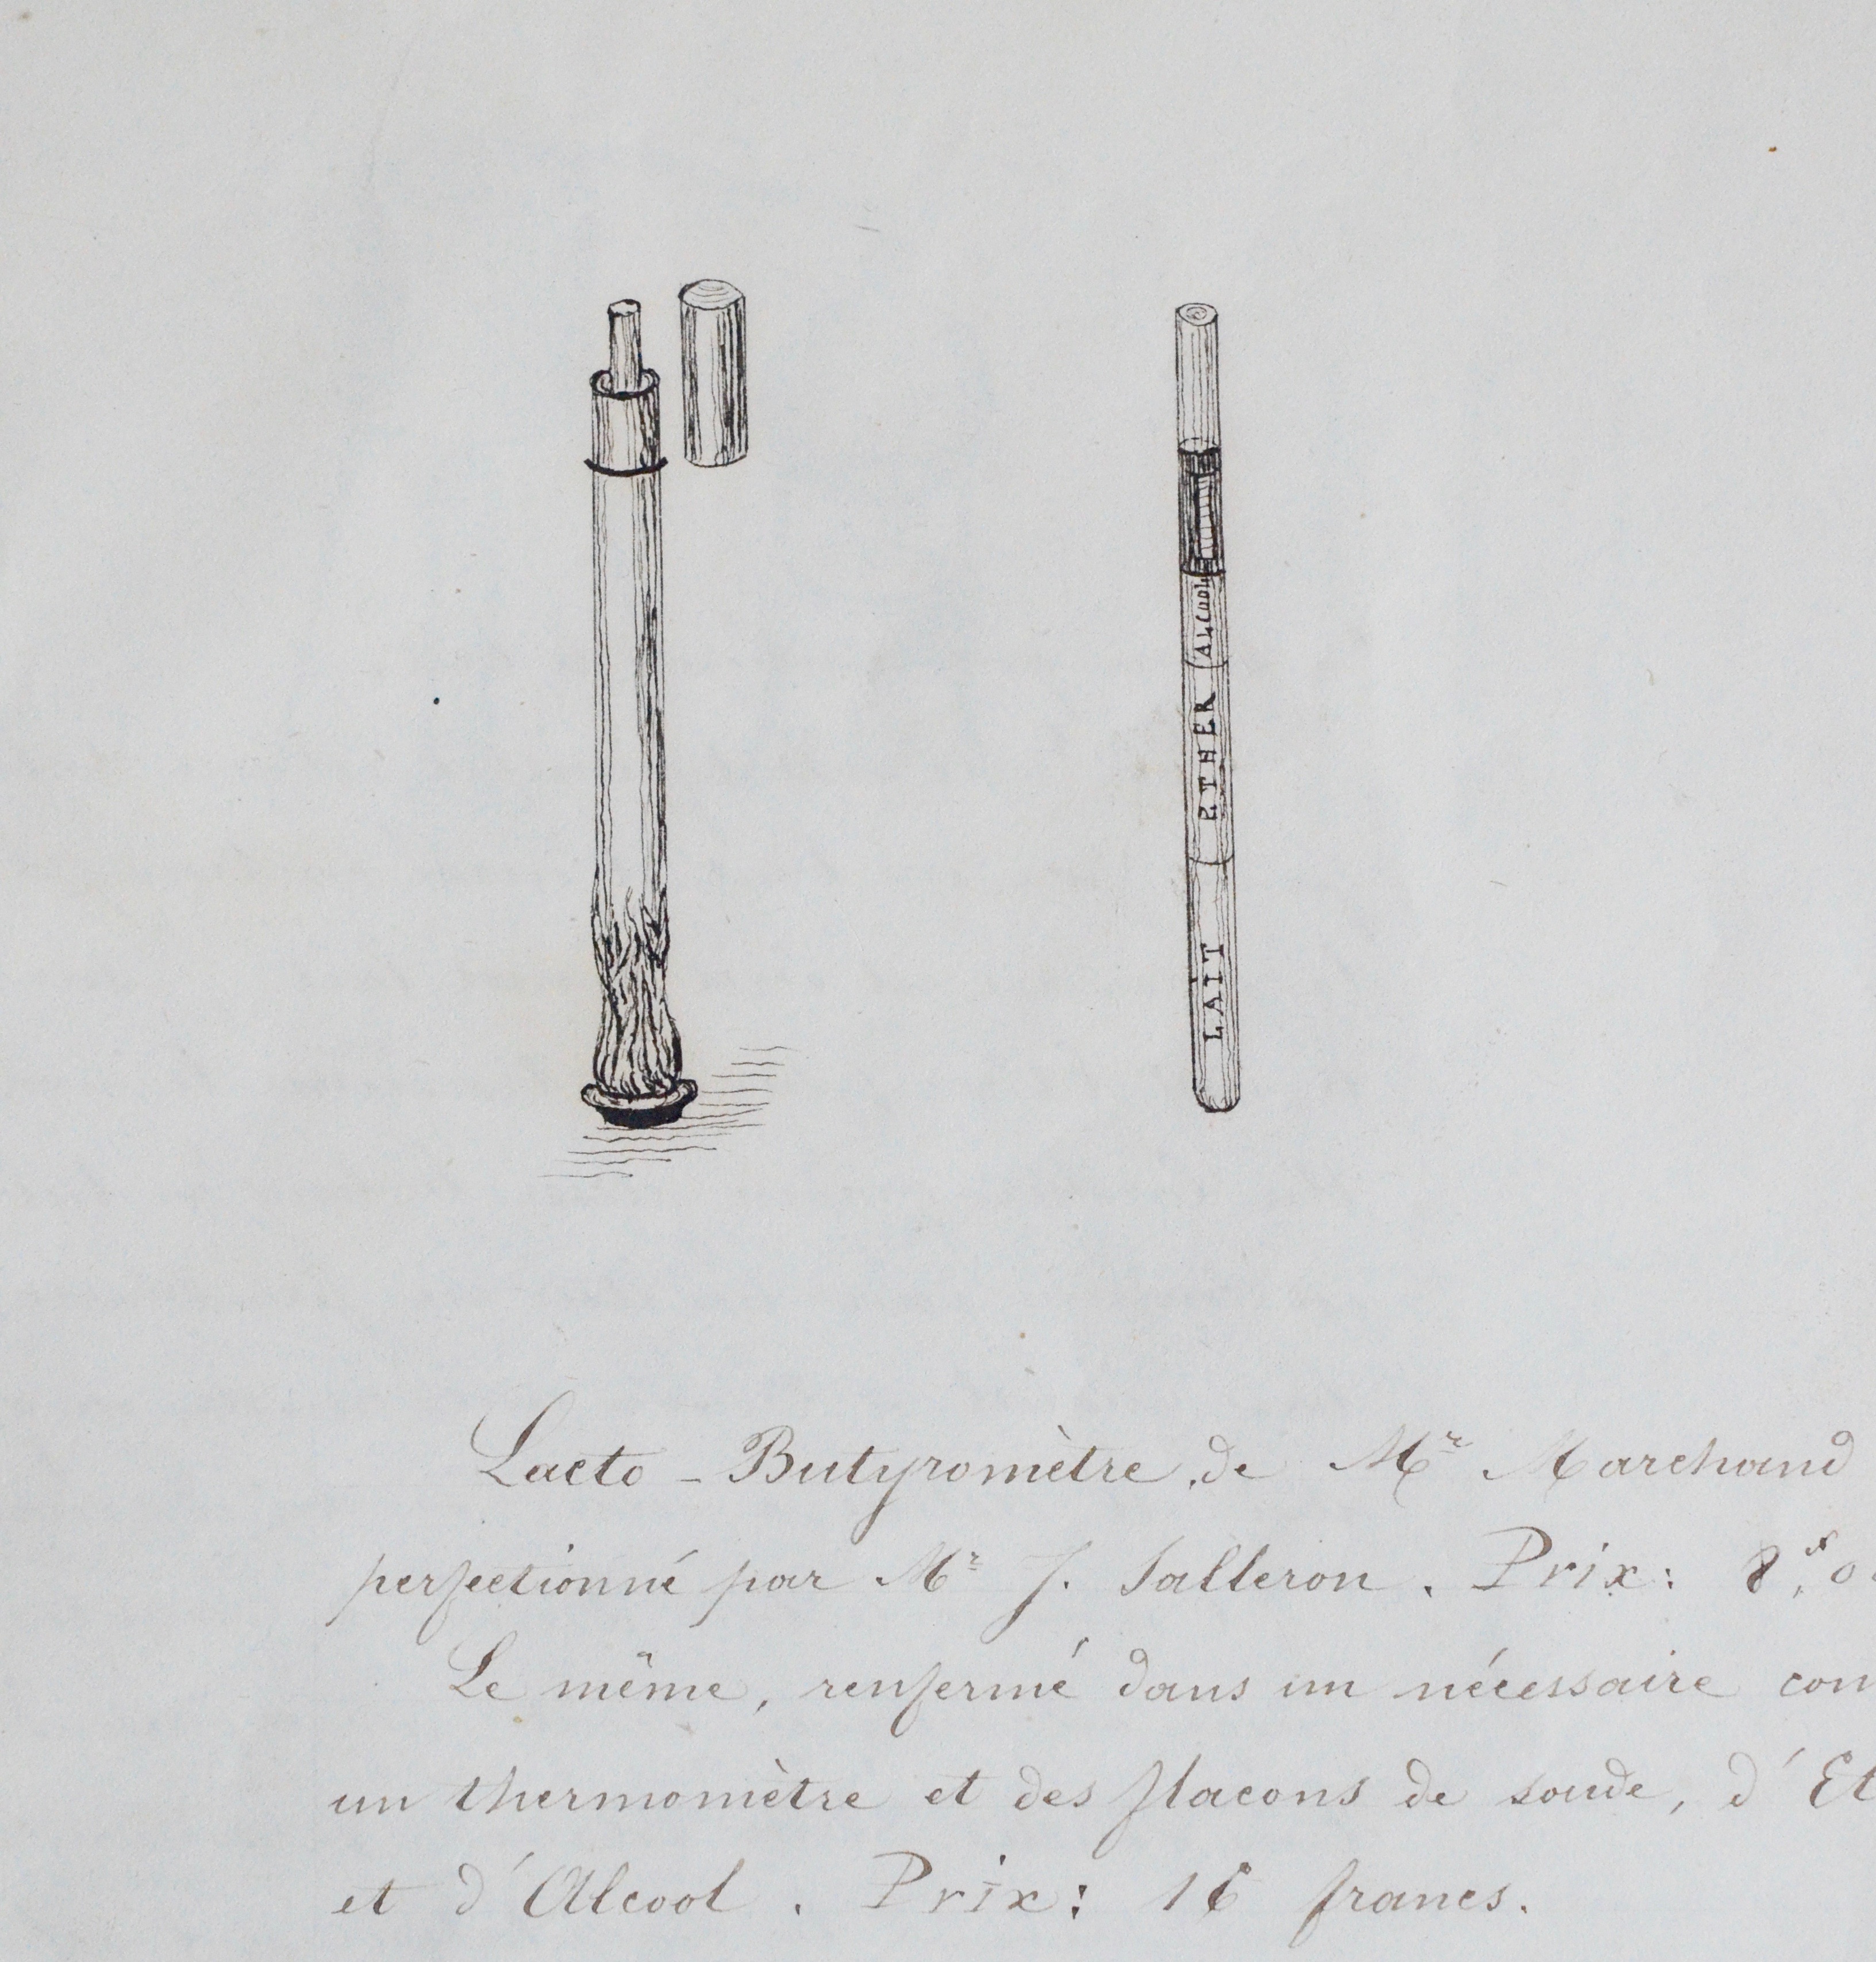 ALCOOL
ETHER
LAIT
Lacto-Butyromètre de Mr Marchand
perfectionné par Mr J. Salleron. Prix: 8f,0
Le même, renfermé dans un nécessaire con
un thermomètre et des flacons de soude, d'Et
et d'Alcool. Prix: 16 francs.